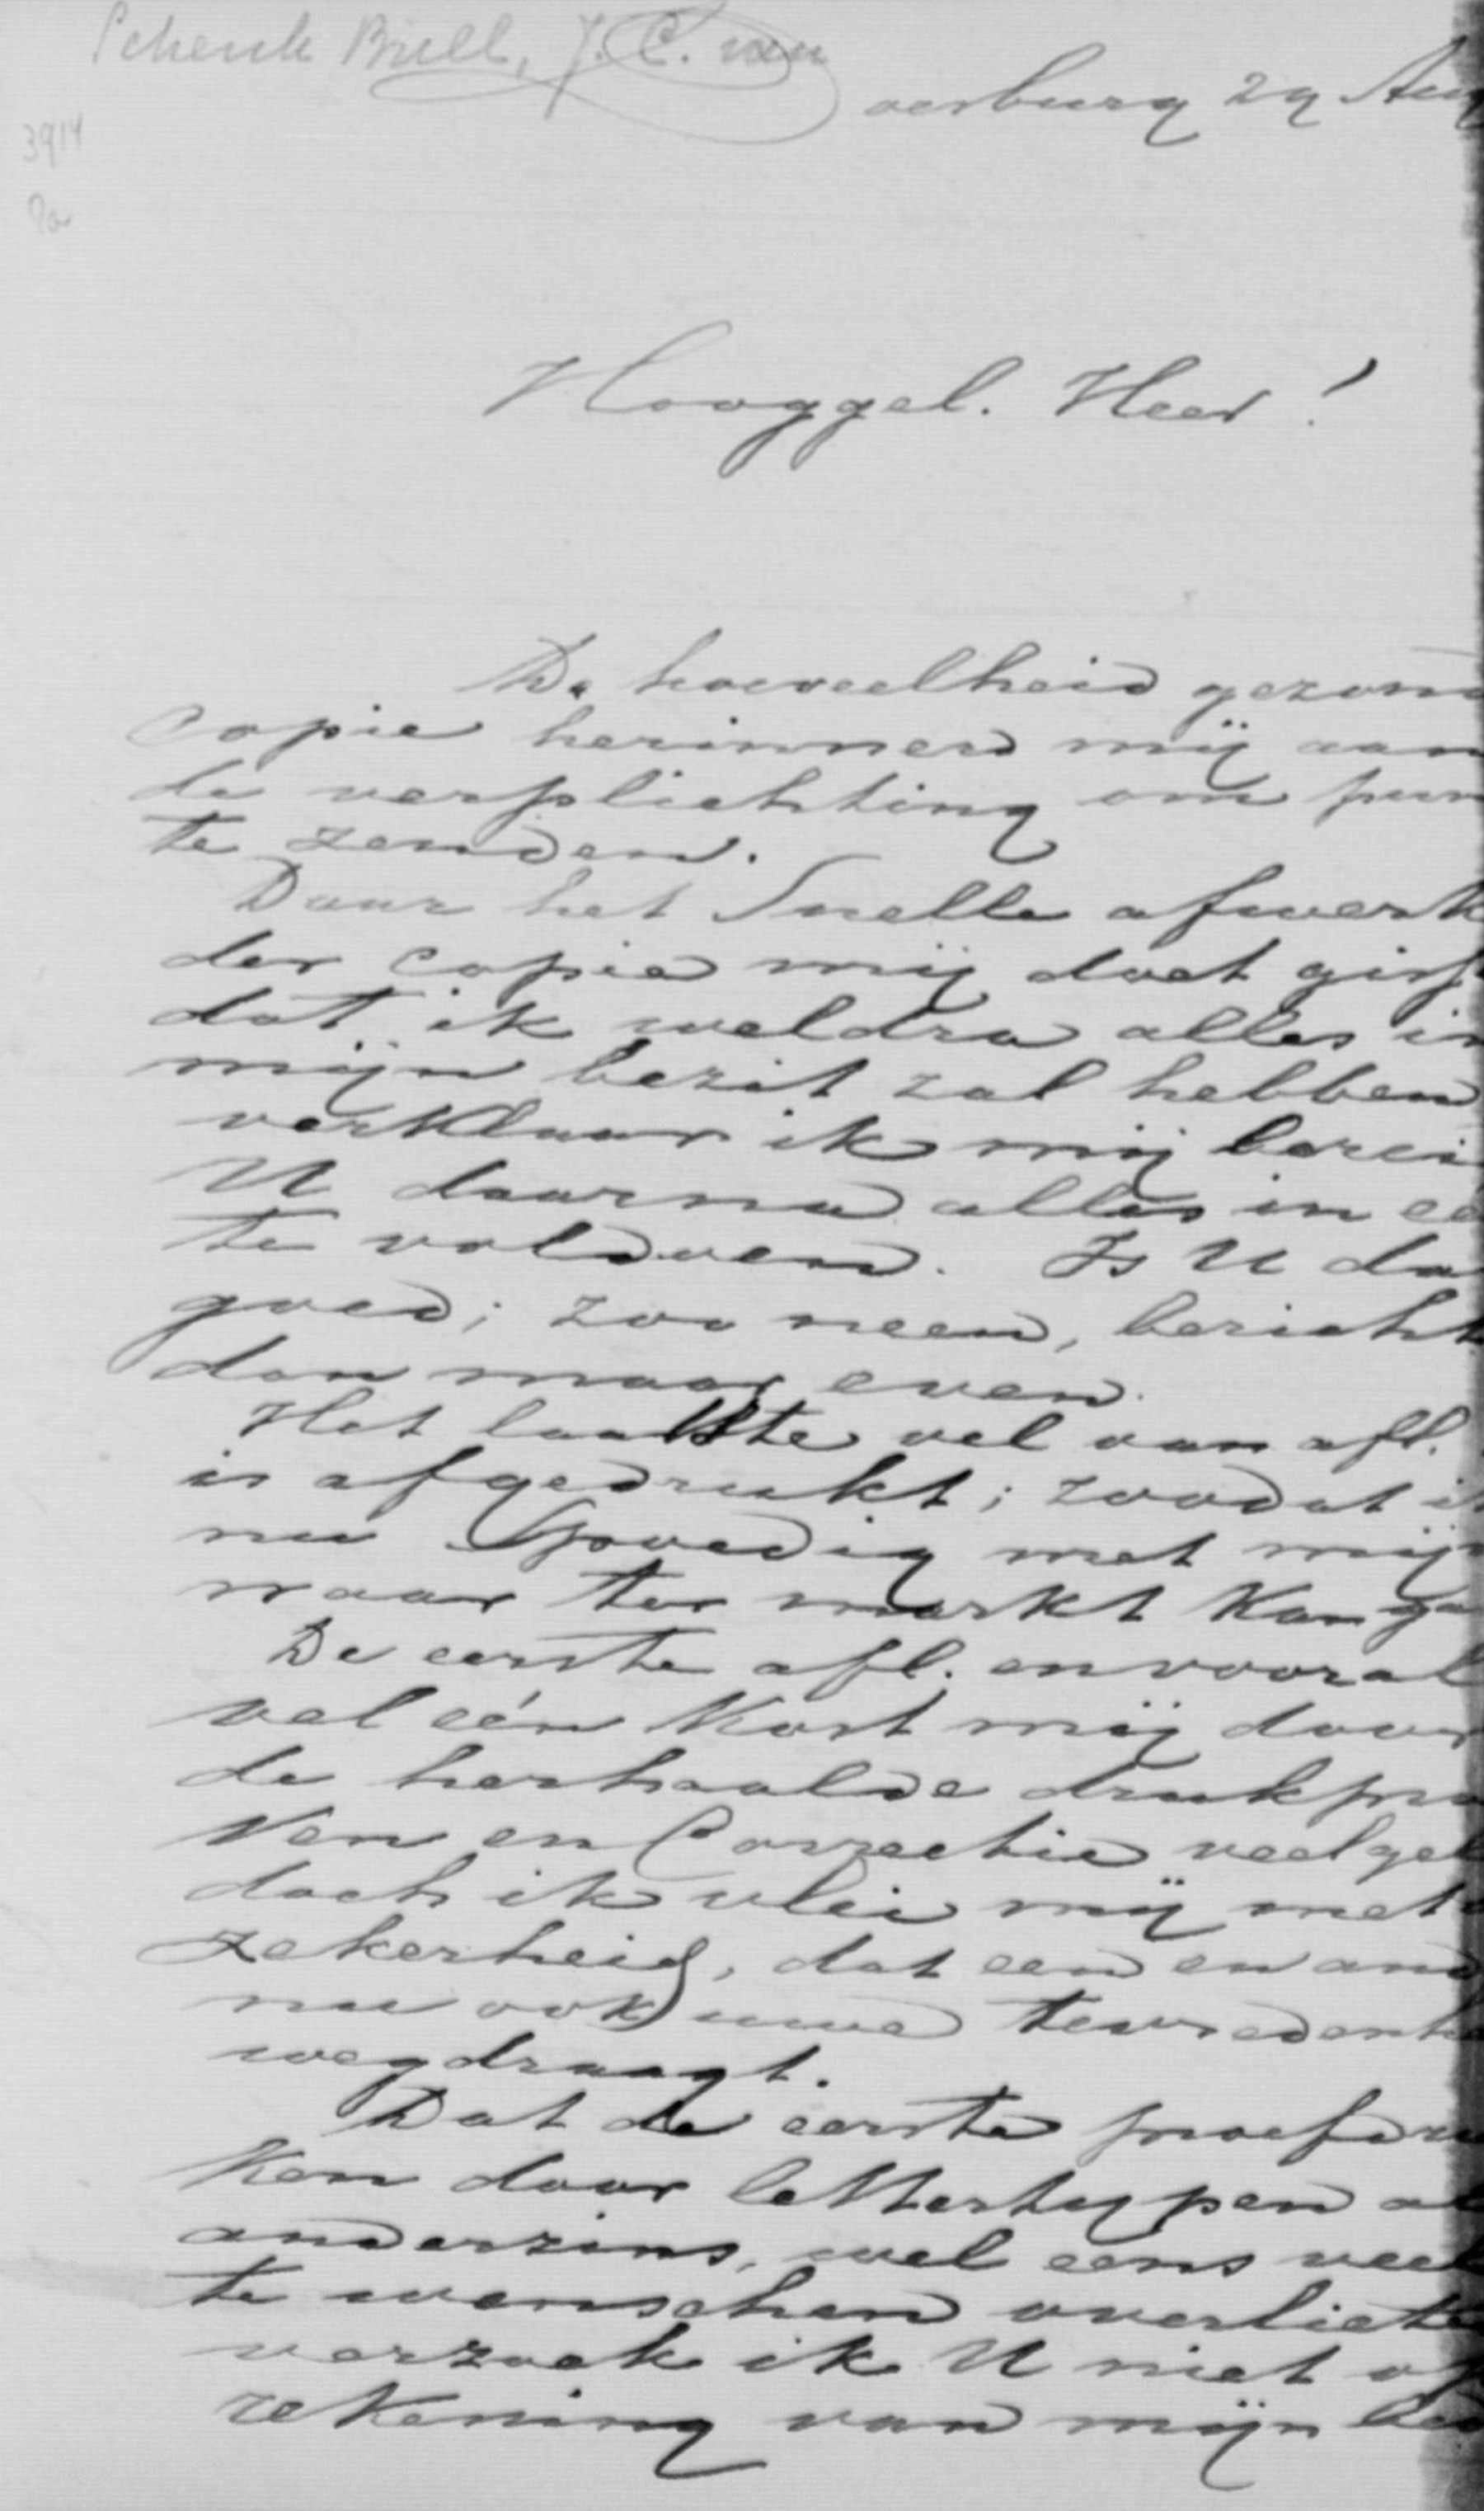 Schenk Brill, J. C. van
3914
oorburg 29 Aug
Hooggel. Heer!
De hoeveelheid gezond
copie herinnerd mij aan
de verplichting om
te zenden.
Daar het Snelle afwerk
der copie mij doet giss
dat ik weldra alles in
mijn bezit zal hebben
verklaar ik mij berei
U daarna alles in ee
te voldoen. Is U da
goed; zoo neen, bericht
dan maar even.
Het laatste vel van afl.
is afgedrukt; zoodat i
nu Spoedig met mijn
waar ter markt kan ga
De eerste afl. en vooral
vel één kost mij door
de herhaalde drukpro
ven en Correctie veel gel
doch ik vlei mij met
zekerheid, dat een en and
nu ook uwe tevredenhe
wegdraagt.
Dat de eerste proefdru
ken door lettertypen a
anderzins, wel eens veel
te wenschen overliete
verzoek ik U niet op
rekening van mijn